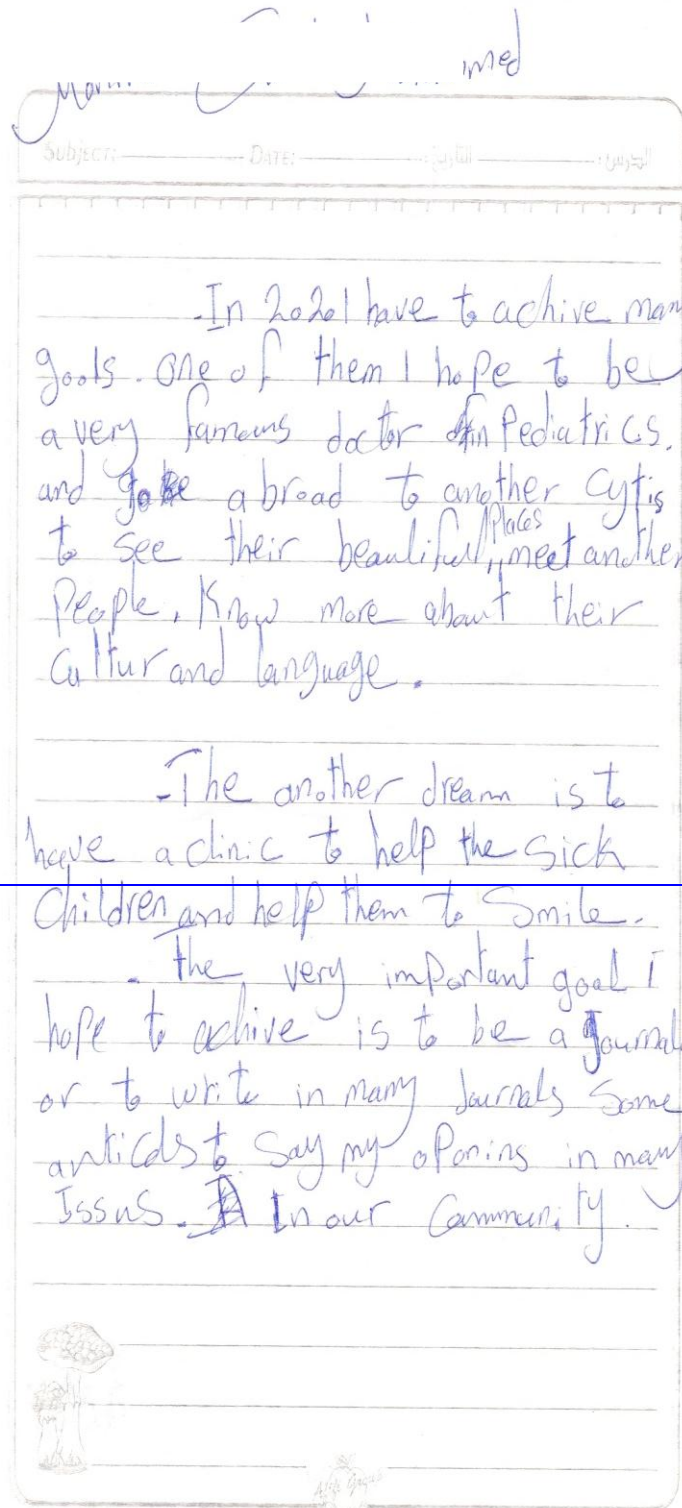 med
SUBJECT: DATE: التاريخ: الدرس:
-In 2020 I have to achive man
gools. one of them I hope to be
a very famous doctor in Pediatrics.
and go abroad to another cytis
to see their beautiful places, meet another
People, Know more about their
Cultur and language.
-The another dream is to
have a clinic to help the Sick
Children and help them to Smile.
- The very important goal I
hope to achive is to be a Journal
or to write in many Journals Some
articds to Say my oponins in many
Issus. In our Community.